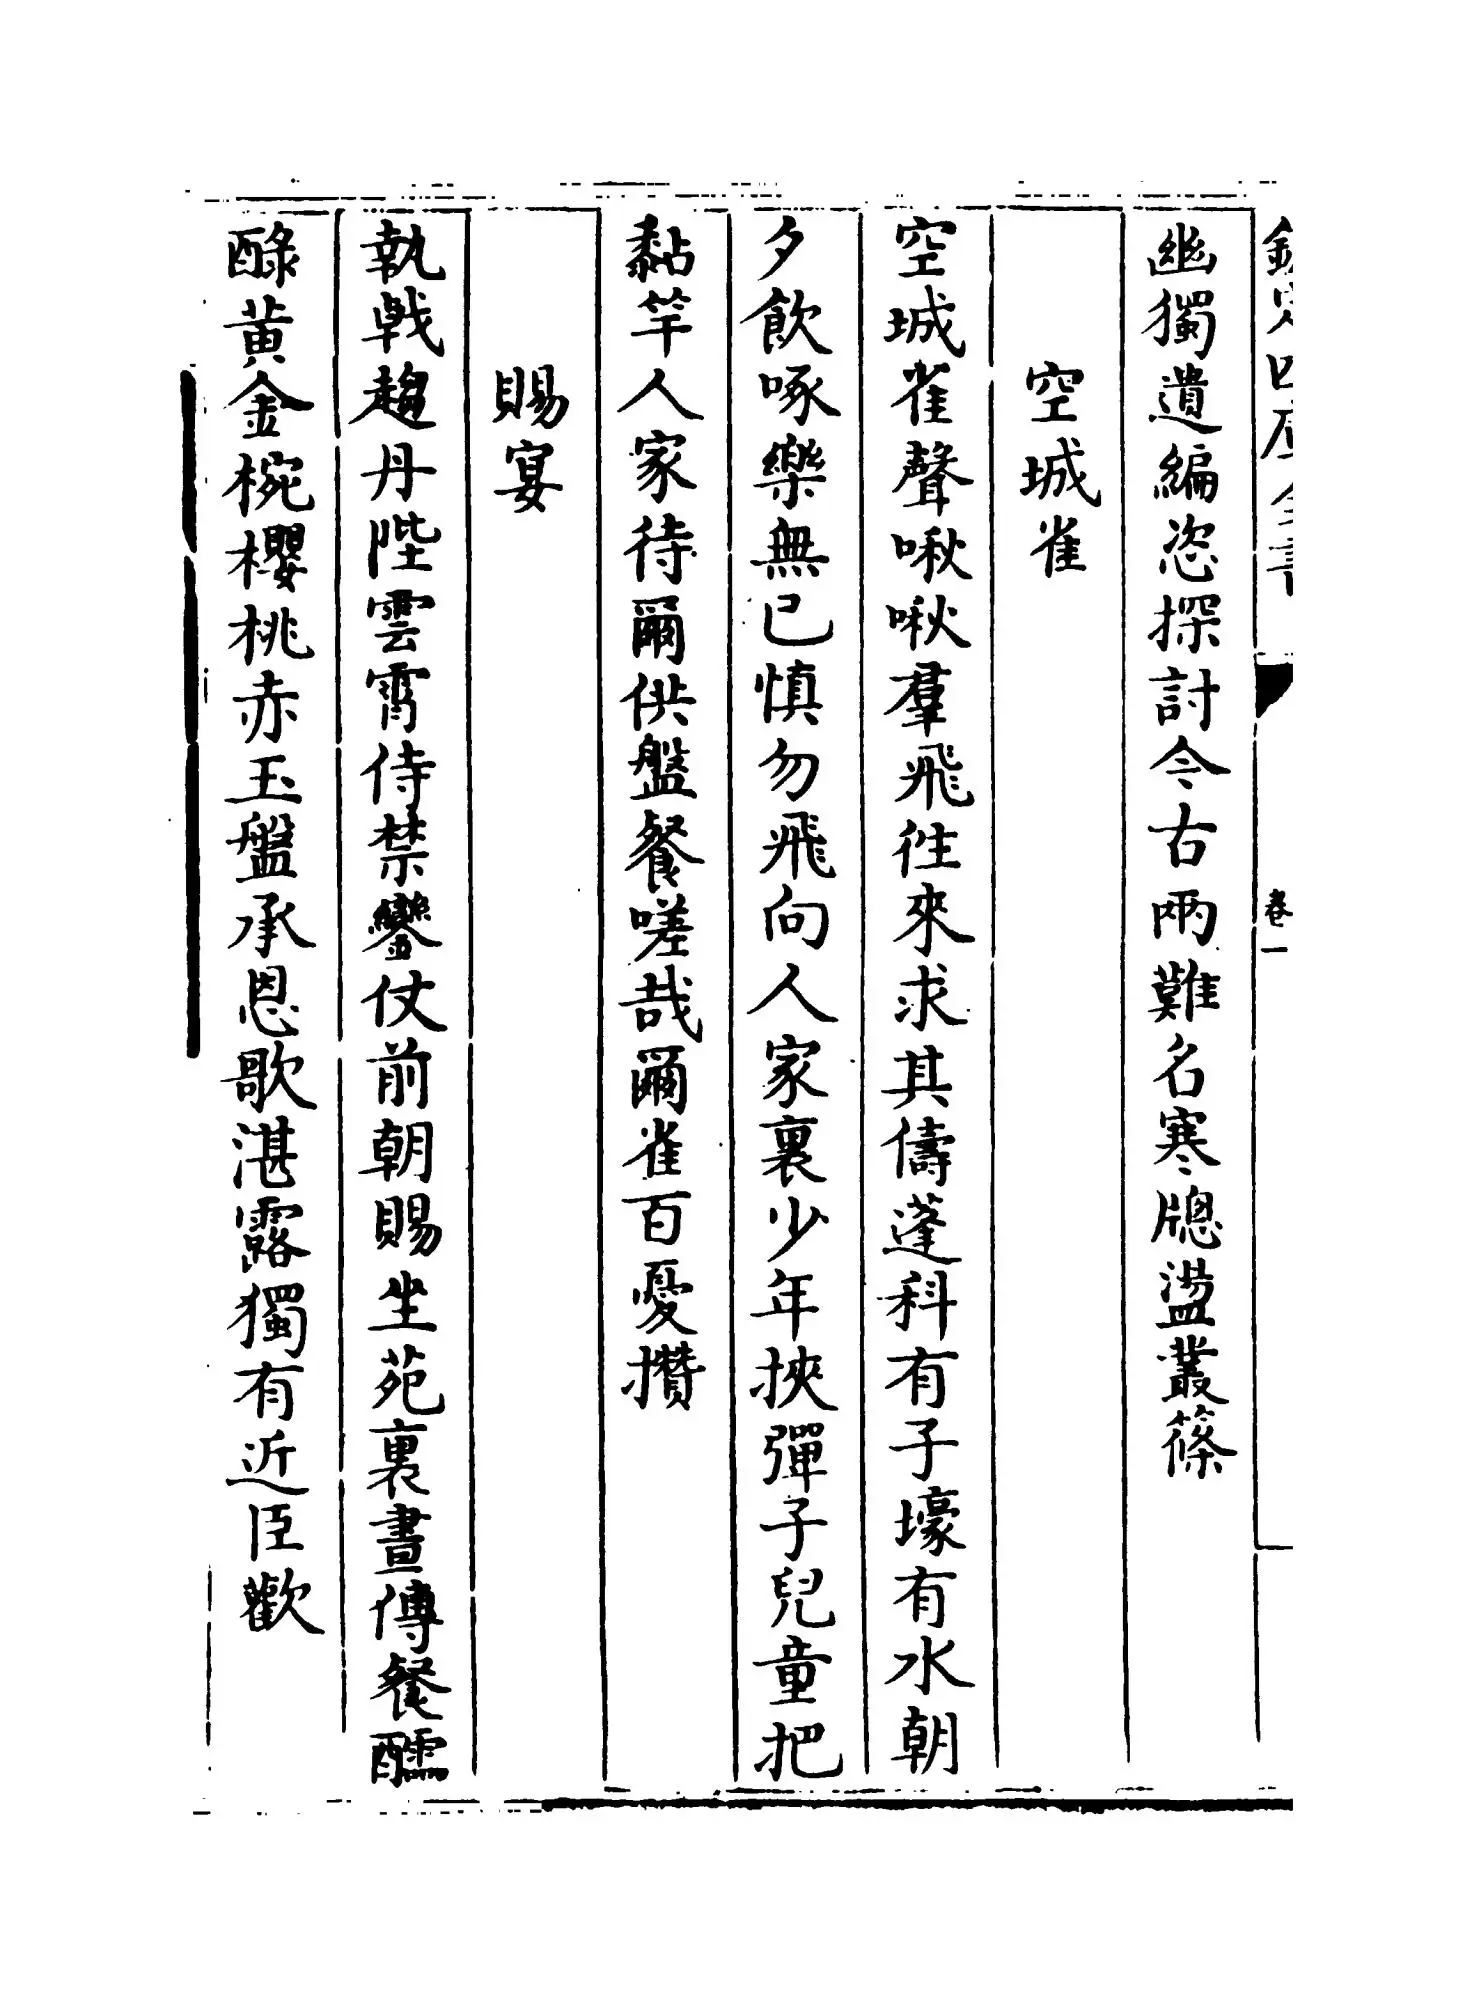 欽定四庫全書
卷一
幽獨遺編恣探討今古兩難名寒牕盪叢篠
空城雀
空城雀聲啾啾羣飛往來求其儔蓬科有子壕有水朝
夕飲啄樂無已慎勿飛向人家裏少年挾彈子兒童把
黏竿人家待爾供盤餐嗟哉爾雀百憂攢
賜宴
執戟趨丹陛雲霄侍禁鑾仗前朝賜坐苑裏晝傳餐醽
醁黄金椀櫻桃赤玉盤承恩歌湛露獨有近臣歡